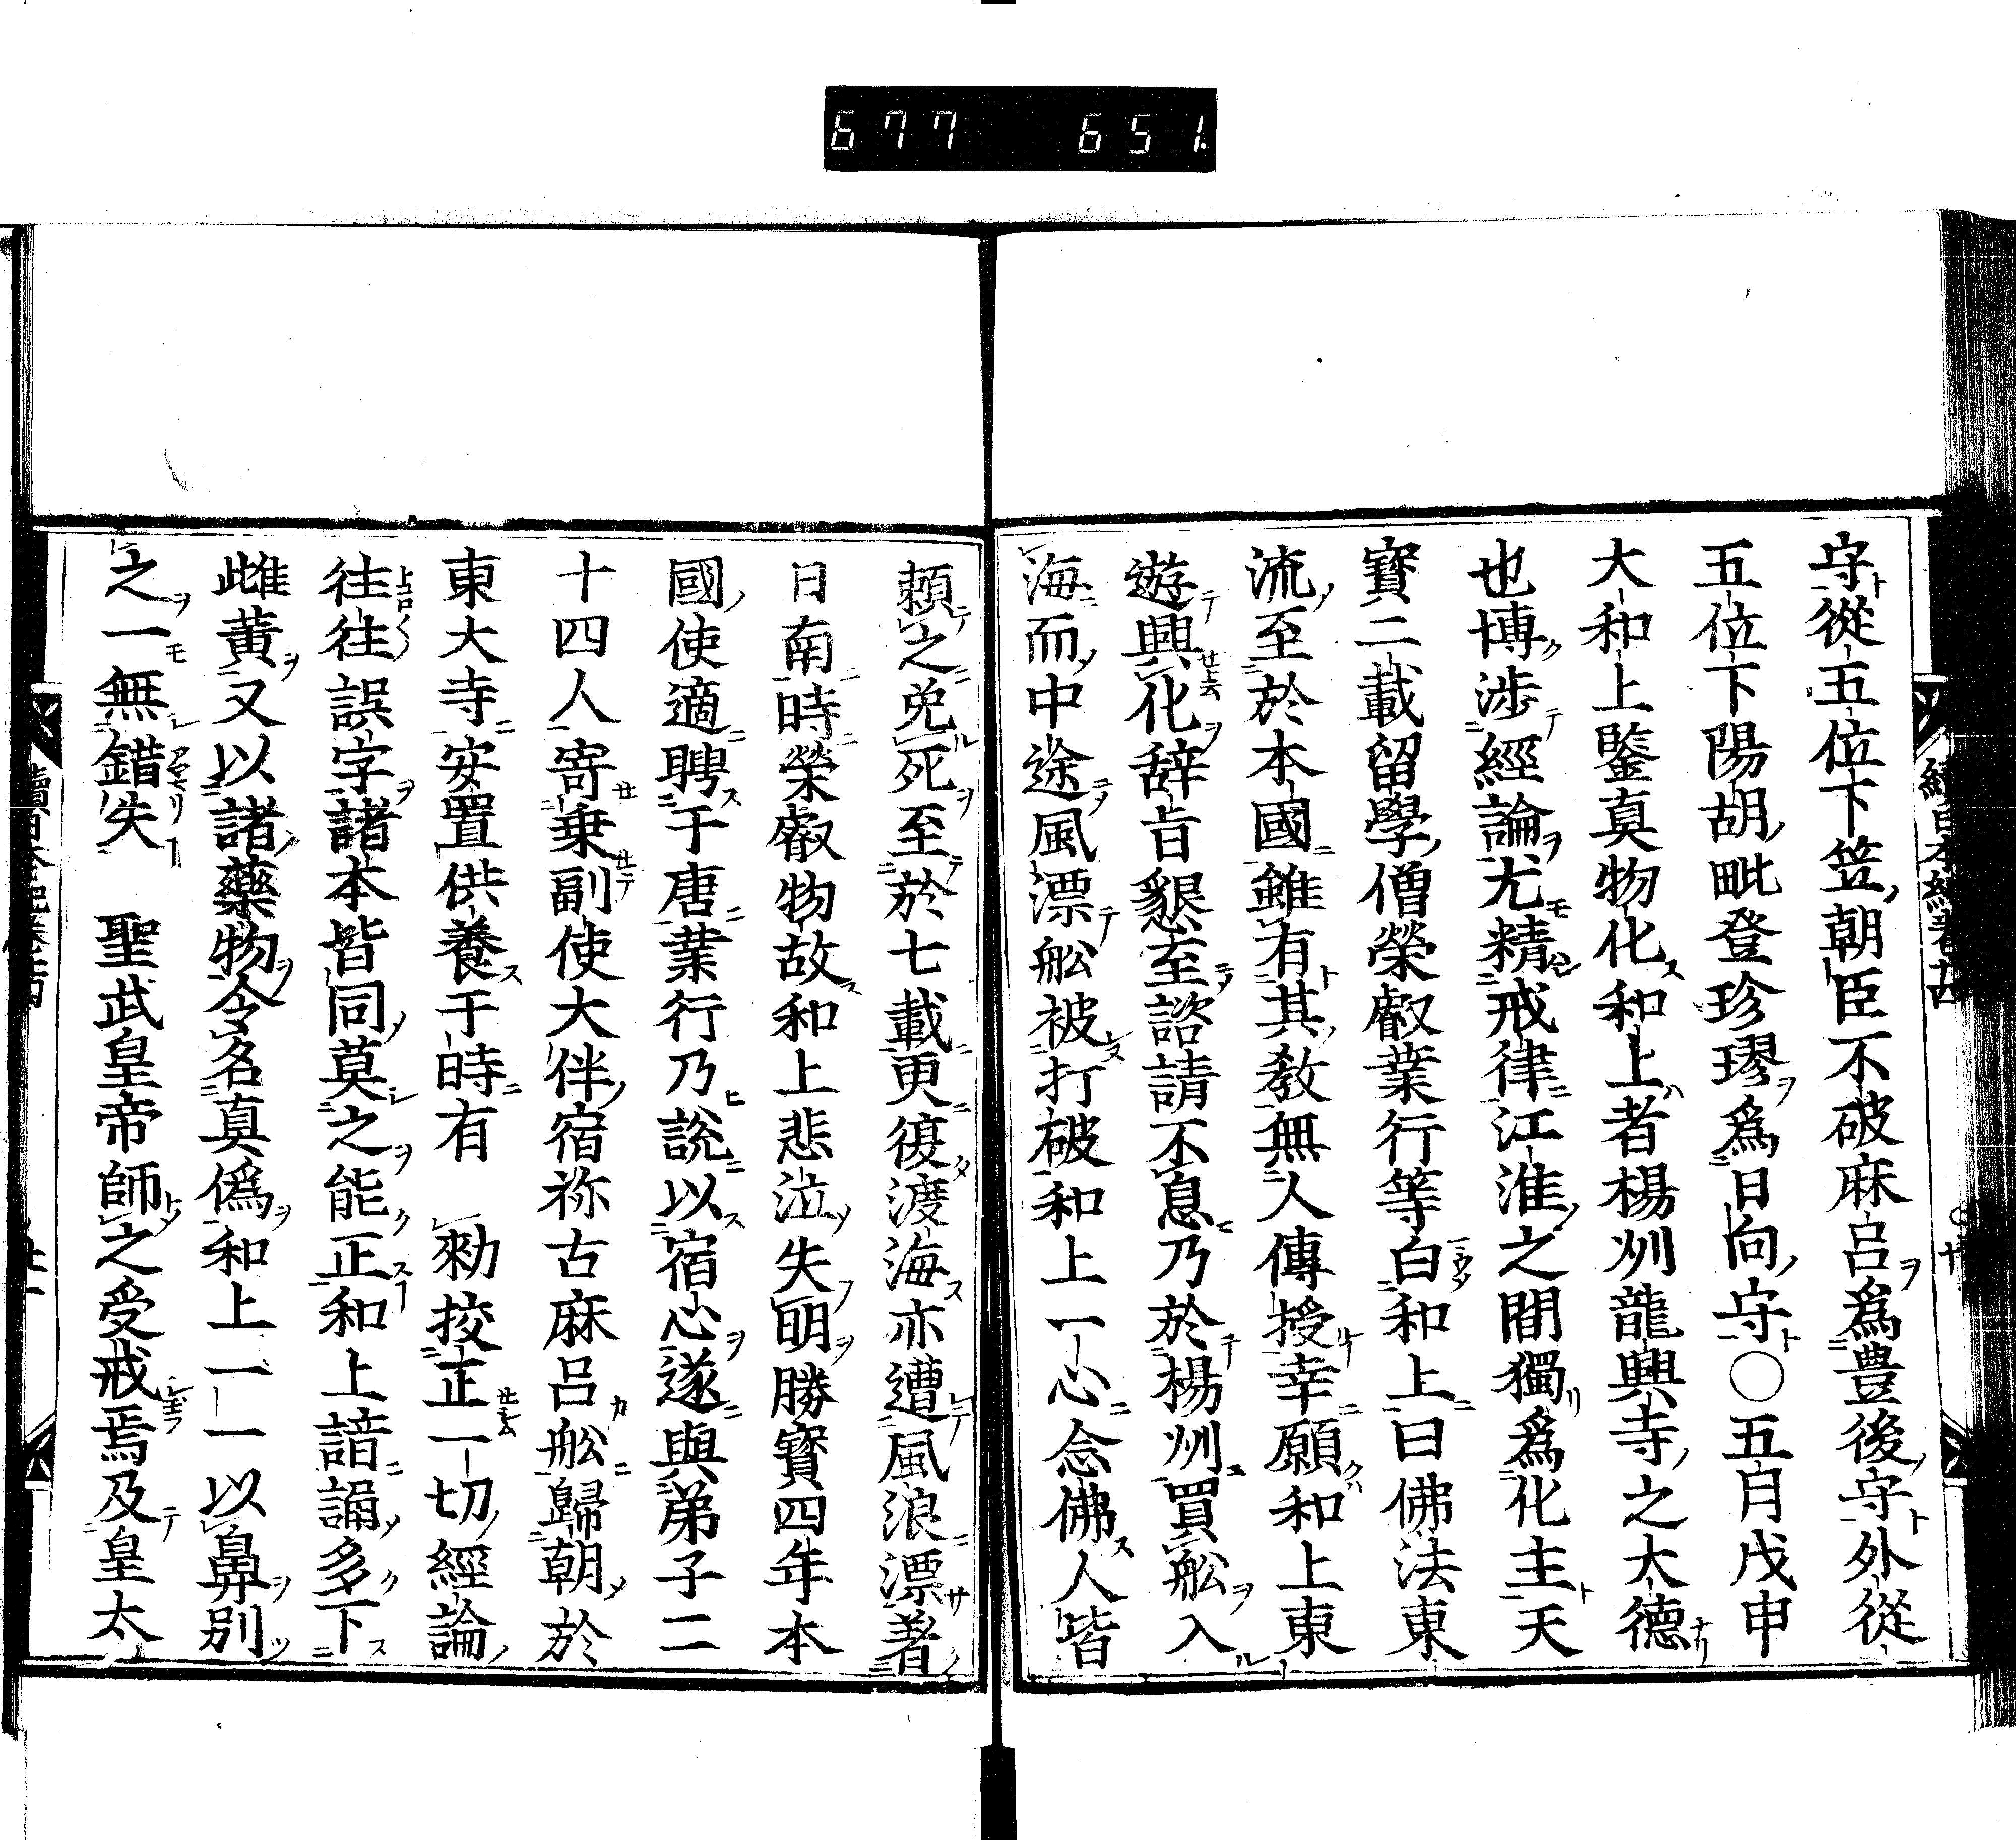 677 651.
守從五位下笠朝臣不破麻呂爲豊後守外從
五位下陽胡毗登珍璆爲日向守○五月戊申
大和上鑒真物化和上者楊州龍興寺之大德
也博渉經論尤精戒律江淮之間獨爲化主天
寶二載留學僧榮叡業行等白和上曰佛法東
流至於本國雖有其教無人傳授幸願和上東
遊興化辞旨懇至諮請不息乃於楊州買舩入
海而中途風漂舩被打破和上一心念佛人皆
頼之免死至於七載更復渡海亦遭風浪漂著
日南時榮叡物故和上悲泣失明勝寳四年本
國使適聘于唐業行乃說以宿心遂與弟子二
十四人寄乗副使大伴宿祢古麻呂舩歸朝於
東大寺安置供養于時有　勑挍正一切經論
往往誤字諸本皆同莫之能正和上諳誦多下
雌黄又以諸藥物令名真僞和上一一以鼻別
之一無錯失　聖武皇帝師之受戒焉及皇太